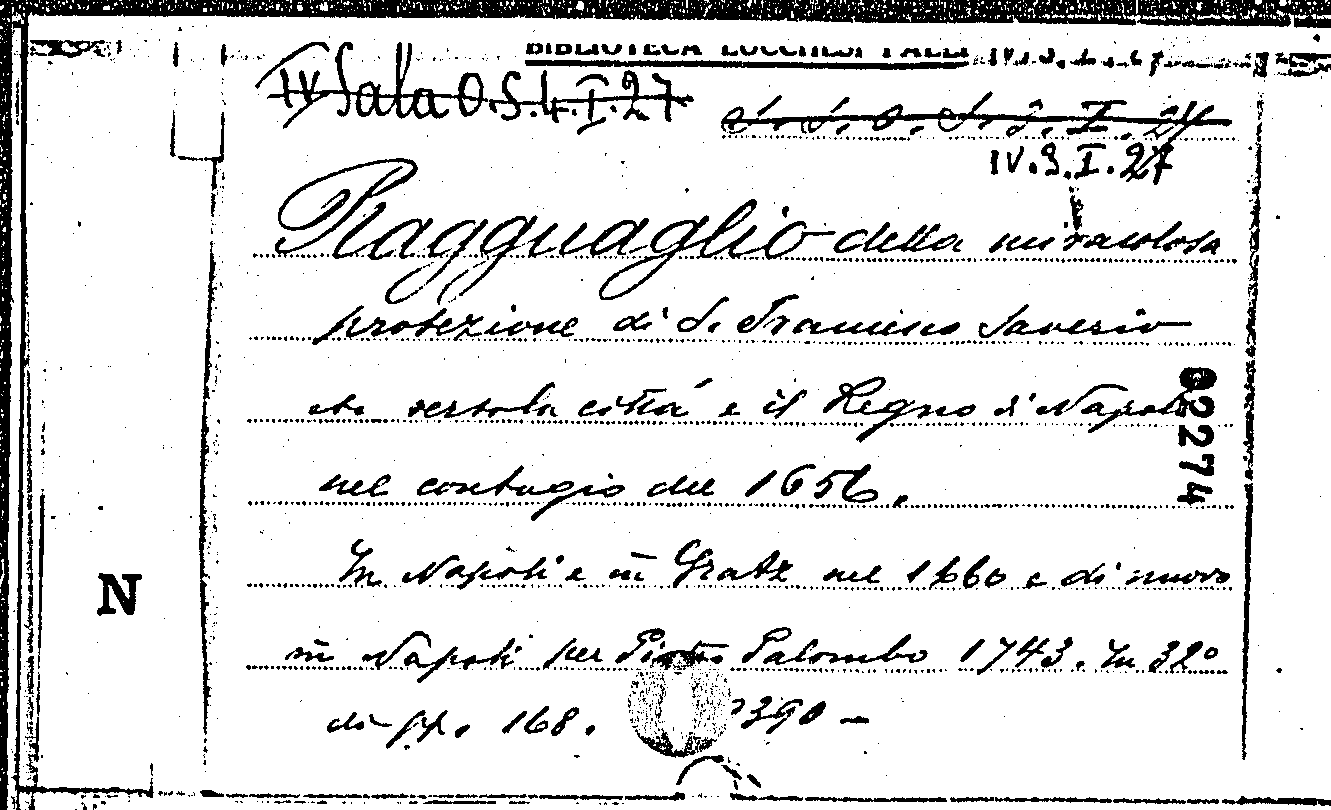 BIBLIOTECA LUCCHESI PALLI
IV Sala O.S.4.I.27
IV.3.I.27
Ragguaglio della miracolosa
protezione di S. Francesco Saverio
verso la città e il Regno di Napoli
nel contagio del 1656.
In Napoli e in Gratz nel 1660 e di nuovo
in Napoli per Pietro Palombo 1743. In 32º
di pp. 168. 390 —
02274
N